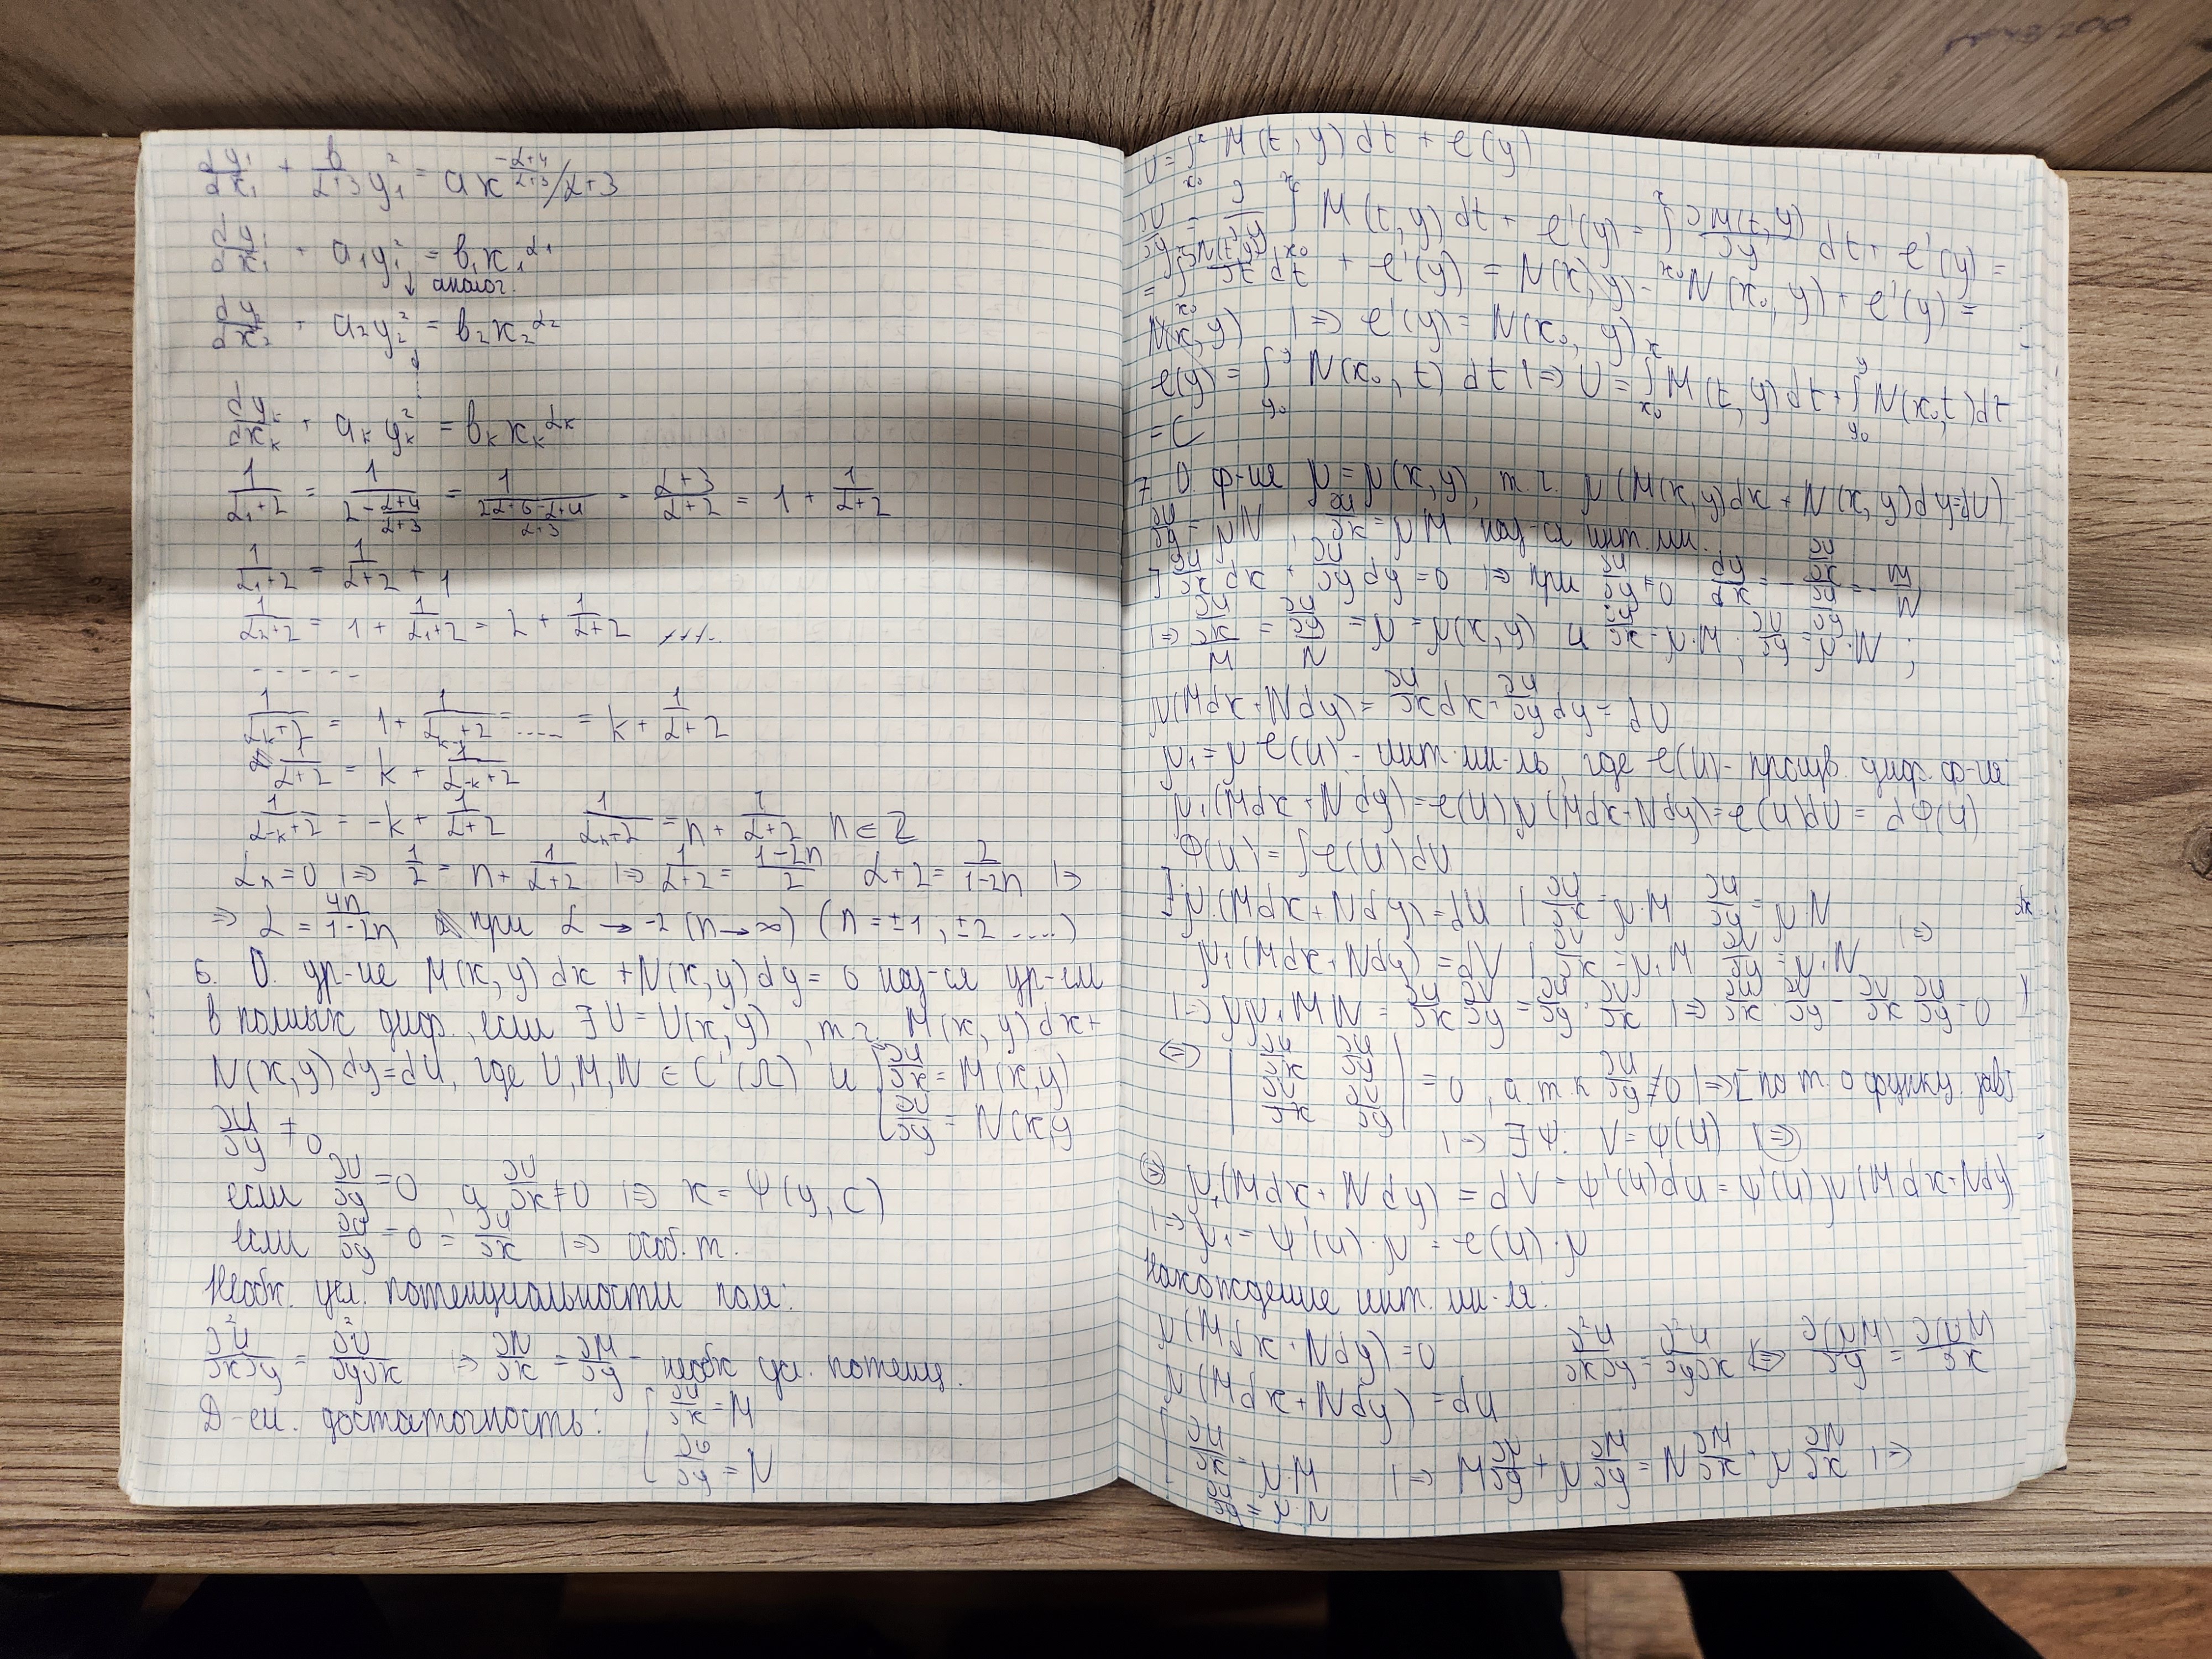 dy₁/dx₁ + b/(α+3) y₁² = a x^(-(α+4)/(α+3)) / α+3
dy₁/dx₁ + a₁y₁² = b₁x₁^α₁
↓ аналог.
dy₂/dx₂ + a₂y₂² = b₂x₂^α₂
dyₖ/dxₖ + aₖyₖ² = bₖxₖ^αₖ
1/(α₁+2) = 1/(2 - (α+4)/(α+3)) = 1/((2α+6-α-4)/(α+3)) = (α+3)/(α+2) = 1 + 1/(α+2)
1/(α₁+2) = 1/(α+2) + 1
1/(α₂+2) = 1 + 1/(α₁+2) = 2 + 1/(α+2)
- - - - - -
1/(αₖ+2) = 1 + 1/(αₖ₋₁+2) = .... = k + 1/(α+2)
1/(α+2) = k + 1/(α₋ₖ+2)
1/(α₋ₖ+2) = -k + 1/(α+2) 1/(αₙ+2) = n + 1/(α+2) n ∈ Z
αₙ = 0 |⇒ 1/2 = n + 1/(α+2) |⇒ 1/(α+2) = (1-2n)/2 α+2 = 2/(1-2n) |⇒
⇒ α = 4n/(1-2n) при α → -2 (n → ∞) (n = ±1, ±2 ....)
6. О. ур-ие M(x,y)dx + N(x,y)dy = 0 наз-ся ур-ем
в полных диф., если ∃ U = U(x,y), т.ч. M(x,y)dx +
N(x,y)dy = dU, где U, M, N ∈ C¹(Ω) и { ∂U/∂x = M(x,y)
∂U/∂y ≠ 0 ∂U/∂y = N(x,y
если ∂U/∂y = 0, а ∂U/∂x ≠ 0 |⇒ x = ψ(y, C)
если ∂U/∂y = 0 = ∂U/∂x |⇒ особ. т.
Необх. усл. потенциальности поля:
∂²U/∂x∂y = ∂²U/∂y∂x |⇒ ∂N/∂x = ∂M/∂y - необх усл. потенц.
Д-ем. достаточность: { ∂U/∂x = M
∂U/∂y = N
U = ∫ₓ₀ˣ M(t,y)dt + φ(y)
∂U/∂y = ∂/∂y ∫ₓ₀ˣ M(t,y)dt + φ'(y) = ∫ₓ₀ˣ ∂M(t,y)/∂y dt + φ'(y) =
= ∫ₓ₀ˣ ∂N(t,y)/∂t dt + φ'(y) = N(x,y) - N(x₀,y) + φ'(y) =
N(x,y) |⇒ φ'(y) = N(x₀,y)
φ(y) = ∫ᵧ₀ʸ N(x₀,t)dt |⇒ U = ∫ₓ₀ˣ M(t,y)dt + ∫ᵧ₀ʸ N(x₀,t)dt
= C
7. О. ф-ие μ = μ(x,y), т.ч. μ(M(x,y)dx + N(x,y)dy = dU)
∂U/∂y = μN, ∂U/∂x = μM наз-ся инт. мн.
[ ∂U/∂x dx + ∂U/∂y dy = 0 |⇒ при ∂U/∂y ≠ 0 dy/dx = - (∂U/∂x)/(∂U/∂y) = - M/N
|⇒ (∂U/∂x)/M = (∂U/∂y)/N = μ = μ(x,y) и ∂U/∂x = μ·M; ∂U/∂y = μ·N;
μ(Mdx + Ndy) = ∂U/∂x dx + ∂U/∂y dy = dU
μ₁ = μ φ(U) - инт. мн-ль, где φ(U) - произв. диф. ф-ия.
μ₁(Mdx + Ndy) = φ(U)μ(Mdx + Ndy) = φ(U)dU = dΦ(U)
Φ(U) = ∫φ(U)dU
[: μ(Mdx + Ndy) = dU | ∂U/∂x = μ·M ∂U/∂y = μN
μ₁(Mdx + Ndy) = dV | ∂V/∂x = μ₁M ∂V/∂y = μ₁N |⇒
|⇒ μμ₁MN = ∂U/∂x ∂V/∂y = ∂U/∂y · ∂V/∂x |⇒ ∂U/∂x · ∂V/∂y - ∂V/∂x ∂U/∂y = 0
⇔ | ∂U/∂x ∂U/∂y ; ∂V/∂x ∂V/∂y | = 0, а т.к ∂U/∂y ≠ 0 |⇒ по т. о функц. зав.
|⇒ ∃ψ: V = ψ(U) ⇒
⇒ μ₁(Mdx + Ndy) = dV = ψ'(U)dU = ψ'(U)μ(Mdx + Ndy)
|⇒ μ₁ = ψ'(U)·μ = φ(U)·μ
Нахождение инт. мн-ля:
μ(Mdx + Ndy) = 0 ∂²U/∂x∂y = ∂²U/∂y∂x ⇔ ∂(μM)/∂y = ∂(μN)/∂x
μ(Mdx + Ndy) = dU
{ ∂U/∂x = μ·M |⇒ M ∂μ/∂y + μ ∂M/∂y = N ∂μ/∂x + μ ∂N/∂x |⇒
∂U/∂y = μ·N